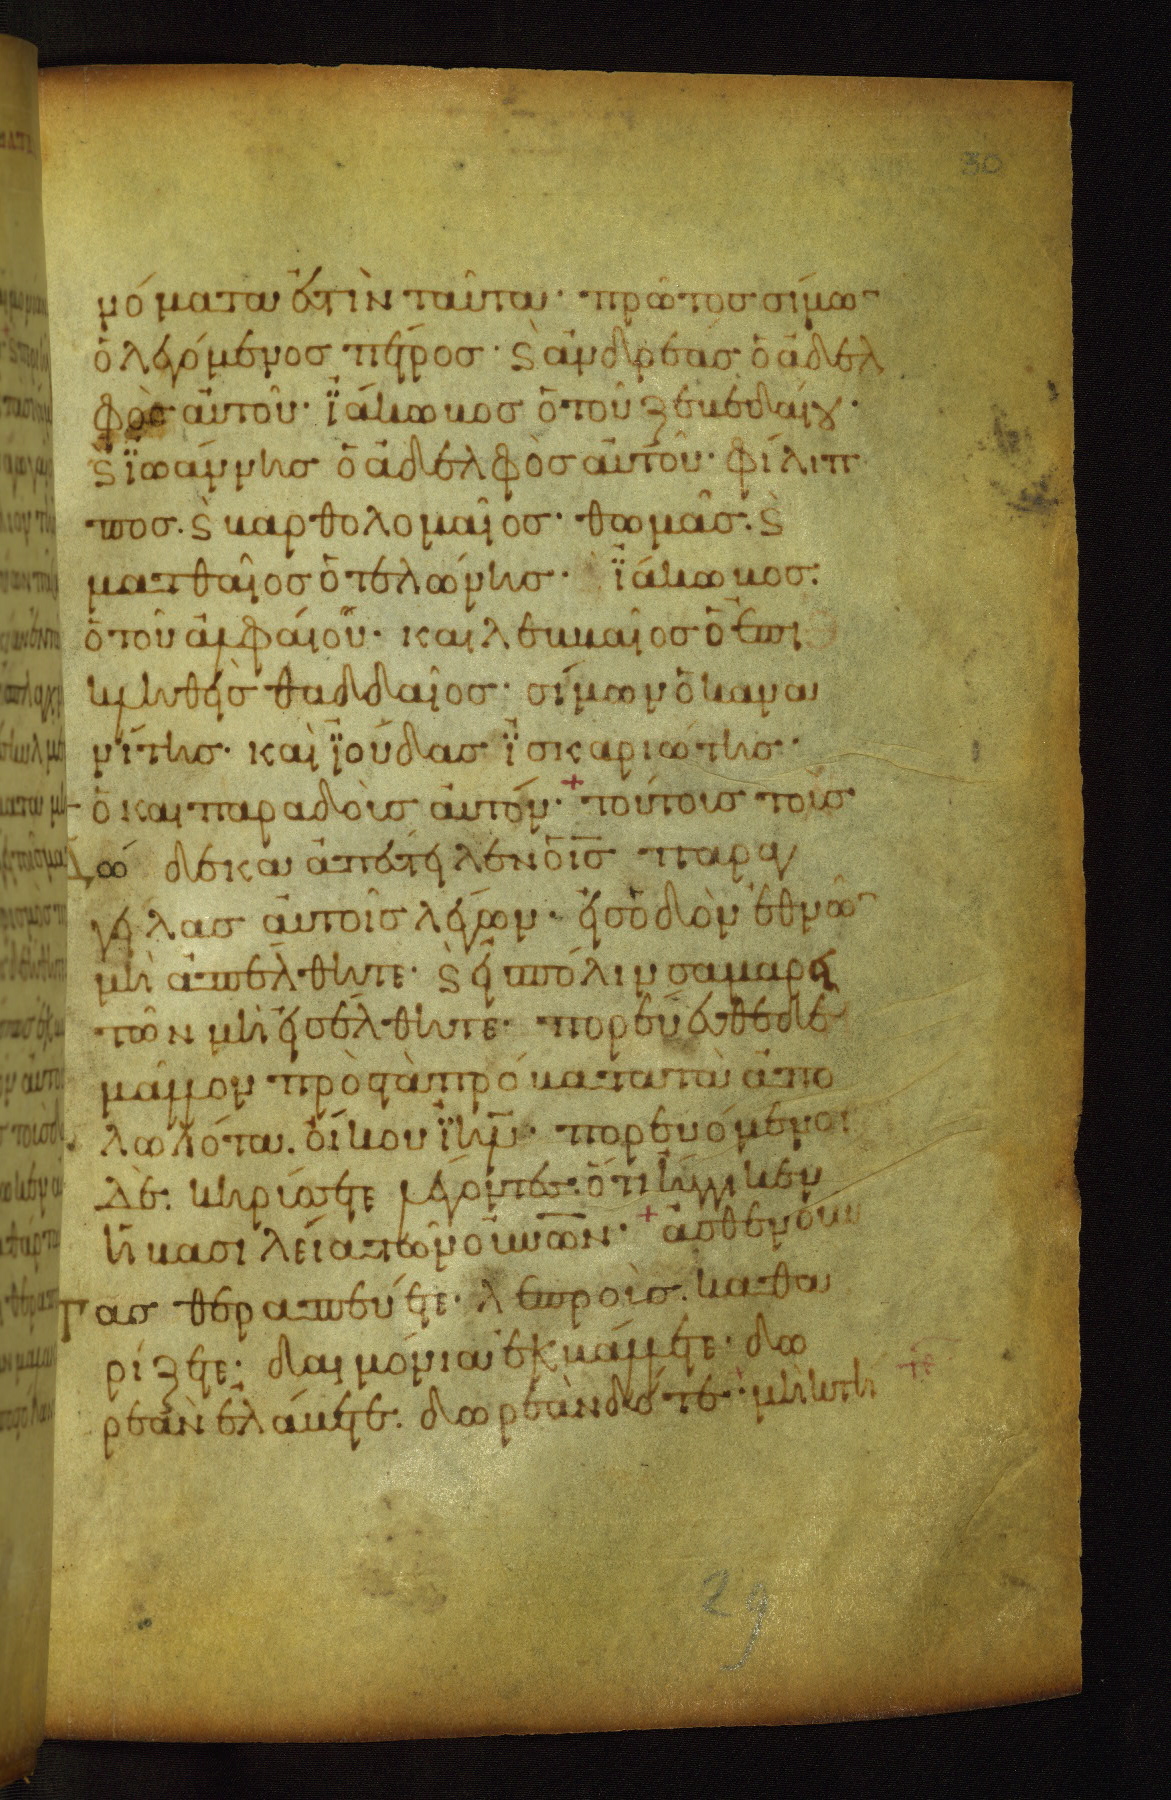 30
νόματα ἐστὶν ταῦτα· πρῶτος σίμω
ὁ λεγόμενος πέτρος· ϛ ἀνδρέας ὁ ἀδελ
φὸς αὐτοῦ· ϊάκωβος ὁ τοῦ ζεβεδαίου·
ϛ ϊωάννης ὁ ἀδελφὸς αὐτοῦ· φίλιπ
πος. ϛ βαρθολομαῖος· θωμᾶς. ϛ
ματθαῖος ὁ τελώνης· ϊάκωβος.
ὁ τοῦ ἀλφαίου· καὶ λεββαῖος ὁ ἐπι
κληθεὶς θαδδαῖος· σίμων ὁ κανα
νίτης· καὶ ϊούδας ϊσκαριώτης·
ὁ καὶ παραδοὺς αὐτόν·+ τούτοις τοῖς
Δώ δεκα ἀπέστειλεν ὁ ι̅ς̅ παραγ
γείλας αὐτοῖς λέγων· εἰς ὁδὸν ἐθνῶ
μὴ ἀπέλθητε· ϛ εἰς πόλιν σαμαρει
τῶν μὴ εἰσέλθητε· πορεύεσθε δὲ
μᾶλλον πρὸς τὰ πρόβατα τὰ ἀπο
λωλότα. οἴκου ϊη̅λ̅· πορευόμενοι
δὲ. κηρύσσετε λέγοντες. ὅτι ἤγγικεν
ἡ βασιλεία τῶν ο̅υ̅ν̅ω̅ν̅·+ ἀσθενοῦν
Τας θεραπεύετε· λεπροὺς. καθα
ρίζετε· δαιμόνια ἐκβάλλετε· δω
ρεὰν ἐλάβετε. δωρεὰν δότε· μὴ κτή
29